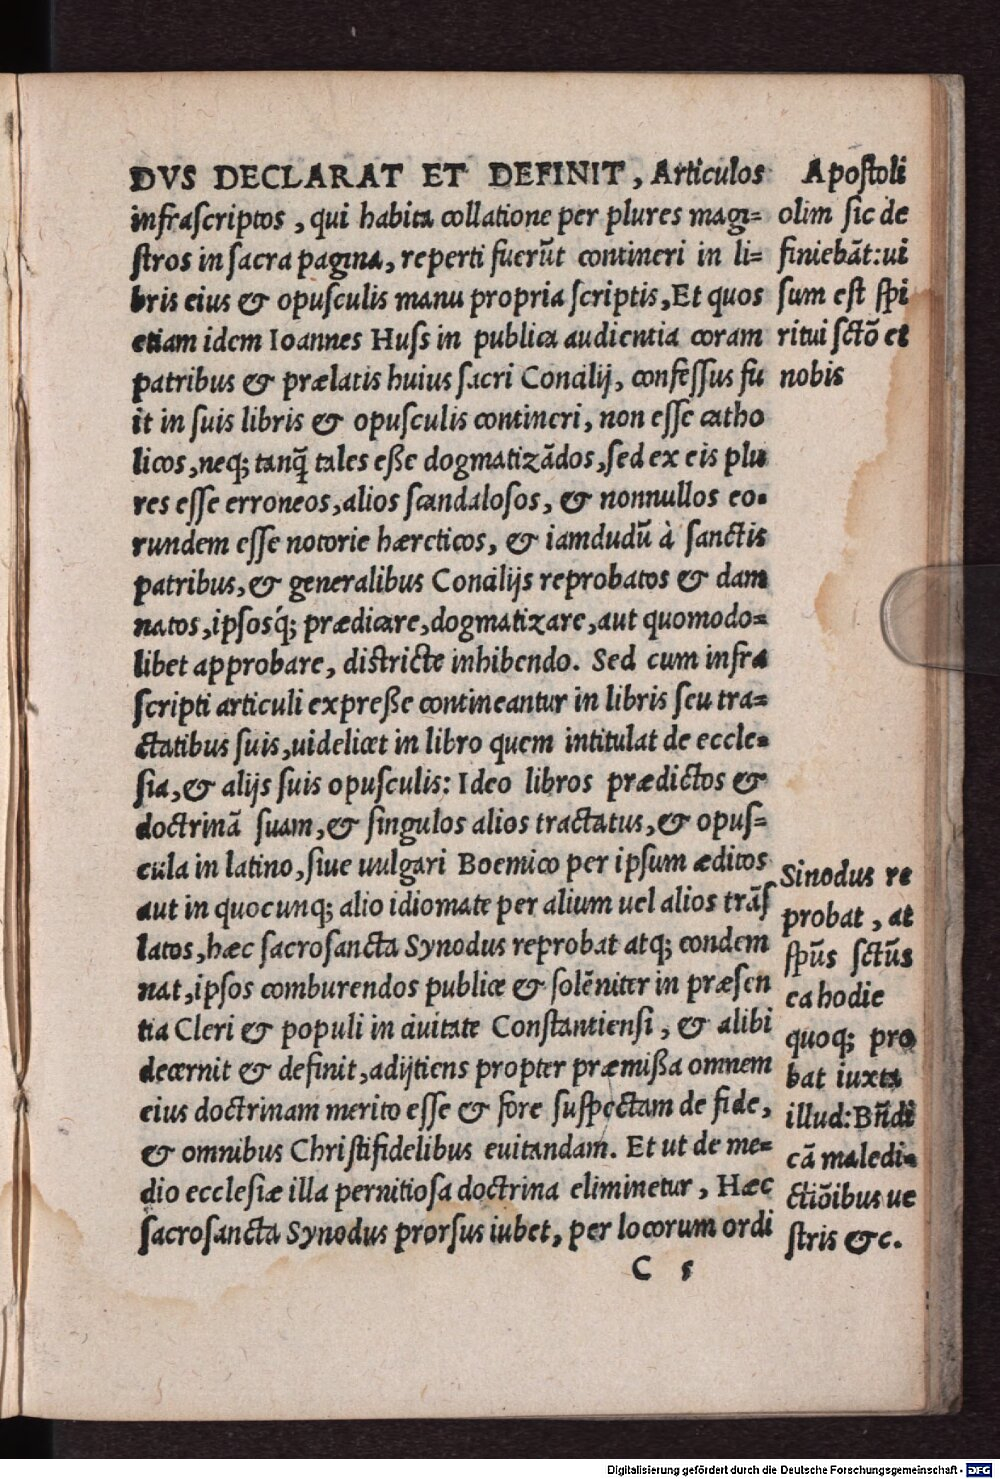 DVS DECLARAT ET DEFINIT, Articulos
infraſcriptos, qui habita collatione per plures magi=
ſtros in ſacra pagina, reperti fuerūt contineri in li=
bris eius & opuſculis manu propria ſcriptis, Et quos
etiam idem Ioannes Huſs in publica audientia coram
patribus & prælatis huius ſacri Concilij, confeſſus fu
it in ſuis libris & opuſculis contineri, non eſſe catho
licos, neq; tanq̃ tales eße dogmatizãdos, ſed ex eis plu
res eſſe erroneos, alios ſcandaloſos, & nonnullos eo=
rundem eſſe notorie hæreticos, & iamdudū à ſanctis
patribus, & generalibus Concilijs reprobatos & dam
natos, ipſosq́; prædicare, dogmatizare, aut quomodo=
libet approbare, diſtricte inhibendo. Sed cum infra
ſcripti articuli expreße contineantur in libris ſeu tra=
ctatibus ſuis, uidelicet in libro quem intitulat de eccle=
ſia, & alijs ſuis opuſculis: Ideo libros prædictos &
doctrinã ſuam, & ſingulos alios tractatus, & opuſ=
cula in latino, ſiue uulgari Boemico per ipſum æditos
aut in quocunq; alio idiomate per alium uel alios trãſ
latos, hæc ſacroſancta Synodus reprobat atq; condem
nat, ipſos comburendos publice & ſolēniter in præſen
tia Cleri & populi in ciuitate Conſtantienſi, & alibi
decernit & definit, adijtiens propter præmißa omnem
eius doctrinam merito eſſe & fore ſuſpectam de fide,
& omnibus Chriſtifidelibus euitandam. Et ut de me=
dio eccleſiæ illa pernitioſa doctrina eliminetur, Hæc
ſacroſancta Synodus prorſus iubet, per locorum ordi
C 5
Apoſtoli
olim ſic de
finiebãt: ui
ſum eſt ſpi
ritui ſctõ et
nobis
Sinodus re
probat, at
ſpūs ſctūs
ea hodie
quoq; pro
bat iuxta
illud: Bñdi
cã maledi=
ctiõibus ue
ſtris &c.
Digitalisierung gefördert durch die Deutsche Forschungsgemeinschaft - DFG